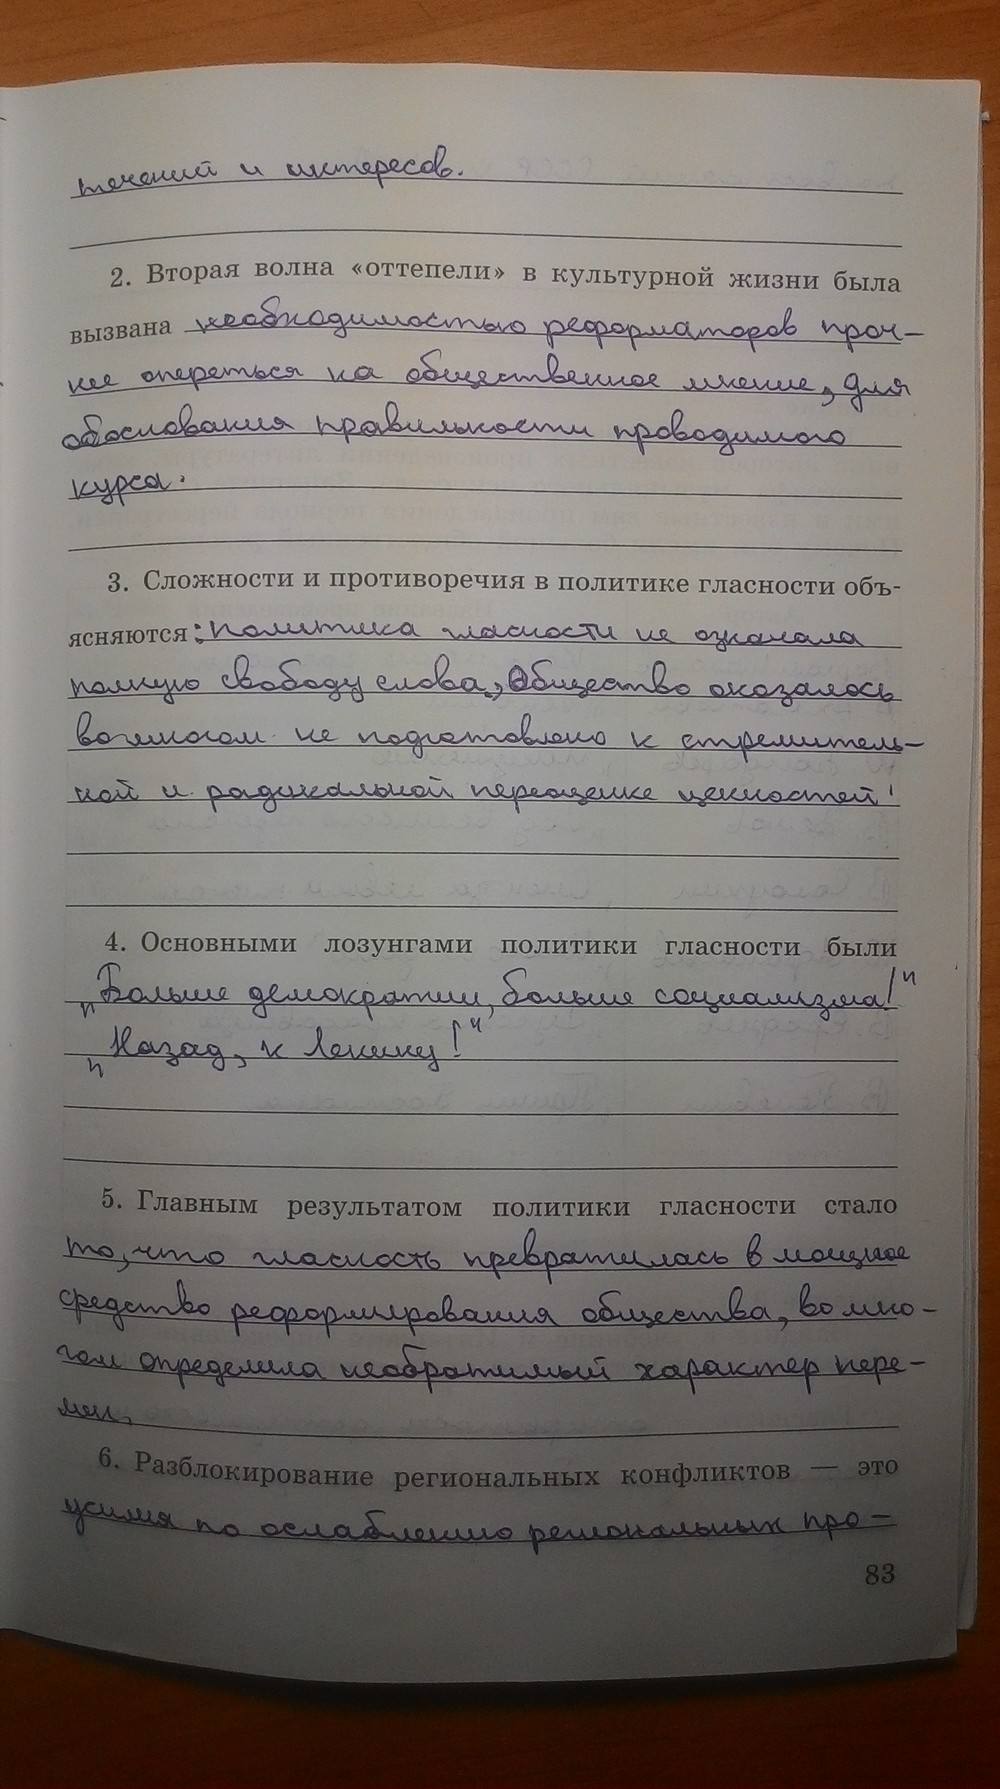 течений и интересов.
2. Вторая волна «оттепели» в культурной жизни была
вызвана необходимостью реформаторов проч-
нее опереться на общественное мнение, для
обоснования правильности проводимого
курса.
3. Сложности и противоречия в политике гласности объ-
ясняются: политика гласности не означала
полную свободу слова, Общество оказалось
во многом не подготовлено к стремитель-
ной и радикальной переоценке ценностей!
4. Основными лозунгами политики гласности были
„Больше демократии, больше социализма!"
„Назад, к Ленину!"
5. Главным результатом политики гласности стало
то, что гласность превратилась в мощное
средство реформирования общества, во мно-
гом определила необратимый характер пере-
мен.
6. Разблокирование региональных конфликтов — это
усилия по ослаблению региональных про-
83